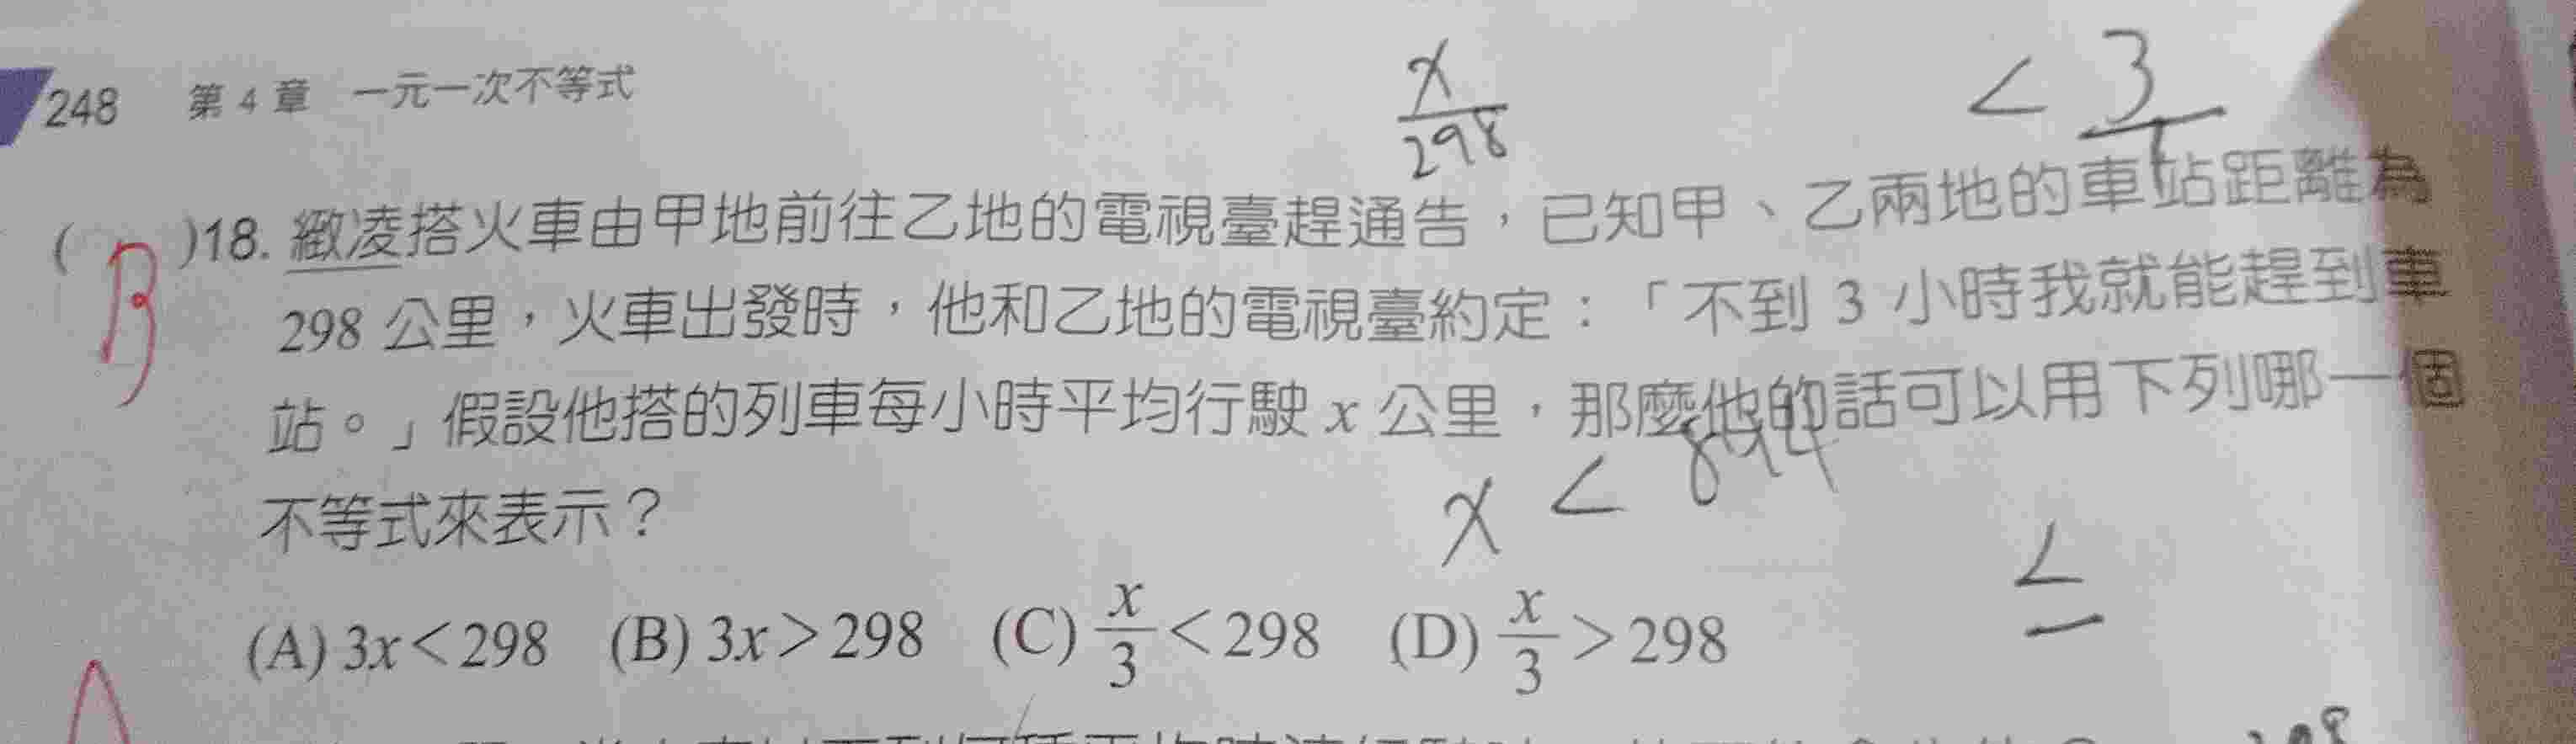 248 第 4 章 一元一次不等式
x/298 < 3/1
( B )18. 緻凌搭火車由甲地前往乙地的電視臺趕通告，已知甲、乙兩地的車站距離為
298 公里，火車出發時，他和乙地的電視臺約定：「不到 3 小時我就能趕到車
站。」假設他搭的列車每小時平均行駛 x 公里，那麼他的話可以用下列哪一個
不等式來表示？
x < 894
<
(A) 3x＜298 (B) 3x＞298 (C) x/3＜298 (D) x/3＞298